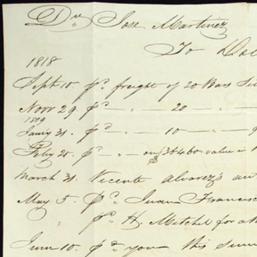 Dr Jose Martinez
To
1818
Sept 15 pd freight of 20 Bars
Novr 29 pd " 20 "
1819
Jany 31 pd " 10 "
Feby 20 pd " on
March 31 Vicente Alvarez's
May 5 pd Juan Francisco
pd H Mitchel for
June 10 pd you this